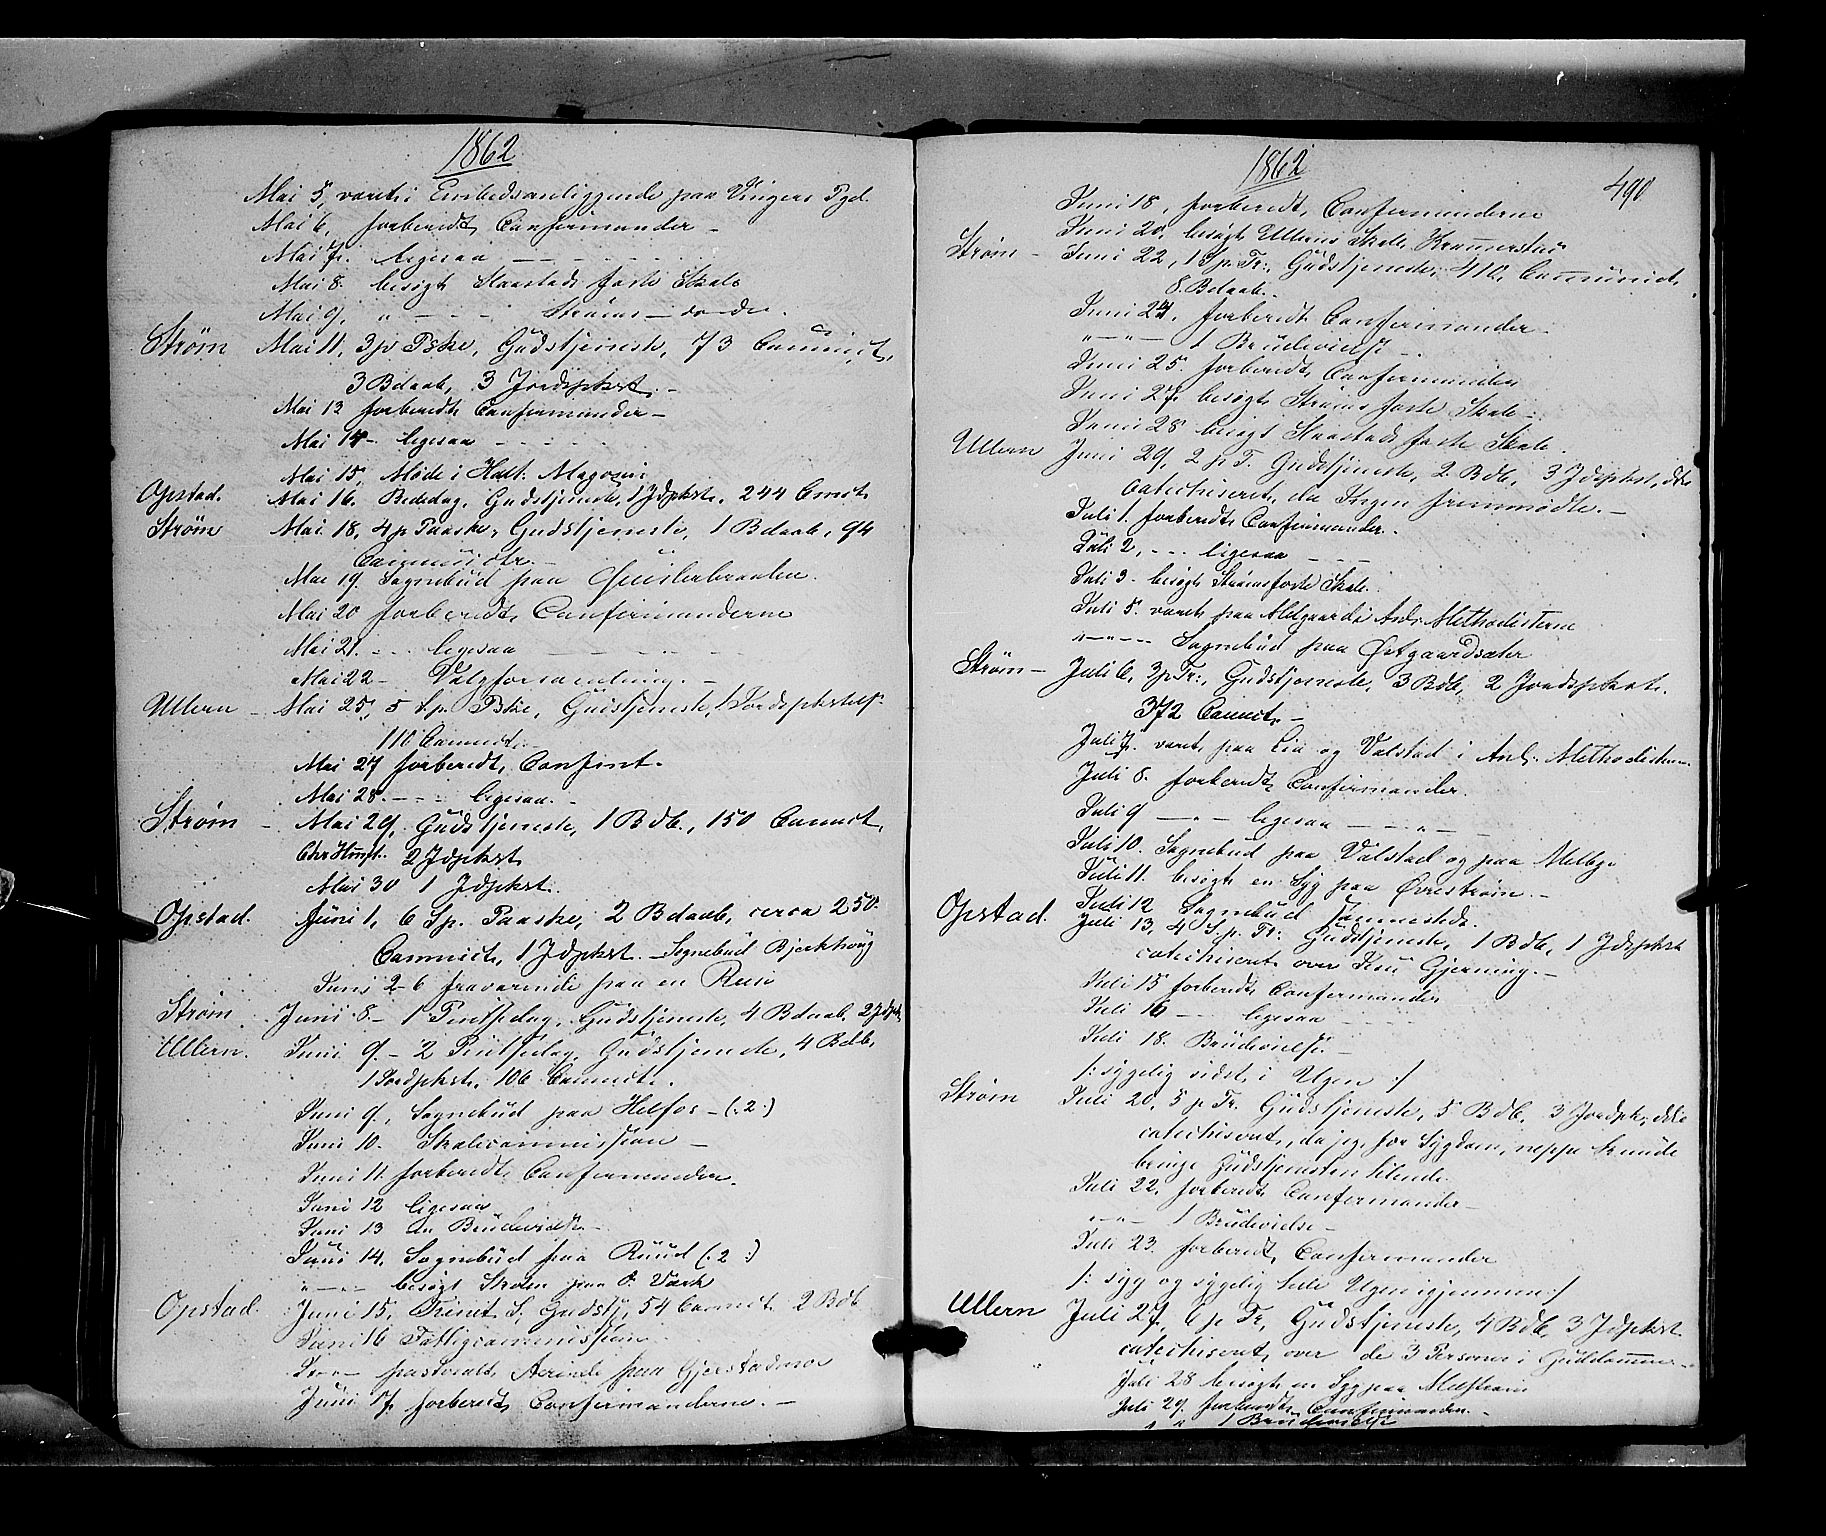 1862
Mai 5, været i Embedsanliggende paa Vingers Pgd.
Mai 6, forberedt Confirmander –
Mai 7. ligesaa – – – –
Mai 8. besøgt Skaastads faste Skole
Mai 9, " – – – Strøms – do – do.
Strøm Mai 11, 3 p Pske, Gudstjeneste, 73 Communict,
3 Bdaab, 3 Jordspkst. –
Mai 13 forberedt Confirmander –
Mai 14 – ligesaa – – – –
Mai 15, Møde i Magasin
Opstad. Mai 16. Bededag, Gudstjeneste, 1 Jdpkst. 244 Cmct.
Strøm Mai 18, 4 p Paaske, Gudstjeneste, 1 Bdaab, 94
Communictr. –
Mai 19. Sognebud paa
Mai 20 forberedt Confirmanderne
Mai 21. – – ligesaa – – – –
Mai 22 – Valgforsamling. –
Ullern – Mai 25, 5 S. p. Pske, Gudstjeneste, 1 Jordspkstelse
110 Commct.
Mai 27 forberedt Confirmt.
Mai 28. – – – ligesaa. –
Strøm – Mai 29, Gudstjeneste, 1 Bdb., 150 Commct,
Chr Himft. 2 Jdpkst
Mai 30 1 Jdpkst.
Opstad. Juni 1, 6 S. p. Paaske, 2 Bdaab, circa 250
Commict, 1 Jdpkst. – Sognebud Bjerkhoug
Juni 2–6 fraværende paa en Reise
Strøm. Juni 8. – 1 Pintsedag, Gudstjeneste, 4 Bdaab, 2 Jdpk.
Ullern. Juni 9. – 2 Pintsedag, Gudstjeneste, 4 Bdb,
1 Jordpkst. 106 Commct.
Juni 9, Sognebud paa Helfos – (: 2 :)
Juni 10. Skolecommission –
Juni 11. forberedt Confirmander.
Juni 12 ligesaa
Juni 13 en Brudevielse –
Juni 14, Sognebud paa Ruud (: 2 :)
" – – – besøgt Skolen paa O. Værk
Opstad. Juni 15, Trinit. S. Gudstj, 54 Commct. 2 Bdb
Juni 16 Fattigcommission
– " – pastoralt Ærinde paa Gjerstadmoe
Juni 17, forberedt Confirmanderne. –
1862
490
Juni 18, forberedt Confirmanderne
Juni 20, besøgt Ullerns Skole
Strøm – Juni 22, 1 S. p. Tr., Gudstjeneste, 410, Communict.
8. Bdaab. –
Juni 24, forberedt Confirmander –
" – " – 1 Brudevielse –
Juni 25. forberedt Confirmander
Juni 27, besøgt Strøms faste Skole –
Juni 28 besøgt Skaastads faste Skole.
Ullern Juni 29, 2 p T. Gudstjeneste, 2 Bdb, 3 Jdspkst, ikke
Catechiseret, da Ingen fremmødte. –
Juli 1. forberedt Confirmander.
Juli 2, – – – ligesaa – – –
Juli 3. besøgt Strøms faste Skole
Juli 5. været paa Melgaard i Anl. Methodisterne
" – " – – – Sognebud paa Østgaardsæter
Strøm – Juli 6, 3 p Tr., Gudstjeneste, 3 Bdb, 2 Jordspkast.
372 Commct. –
Juli 7. været paa Lia og Valstad i Anl. Methodisterne
Juli 8. forberedt Confirmander.
Juli 9 – " – ligesaa – – " –
Juli 10. Sognebud paa Valstad og paa Melbye
Juli 11. besøgt en Syg paa Øvrestrøm. –
Juli 12 Sognebud
Opstad. Juli 13, 4 S. p. Tr: Gudstjeneste, 1 Bdb, 1 Jdspkst
catechiseret over Jesu Gjerning. –
Juli 15 forberedt Confirmander
Juli 16 – – – ligesaa – – –
Juli 18. Brudevielse. –
/: sygelig sidst i Ugen :/
Strøm Juli 20, 5 p Tr. Gudstjeneste, 5 Bdb, 3 Jordpk, ikke
catechiseret, da jeg, for Sygdom, neppe kunde
bringe Gudstjenesten tilende.
Juli 22, forberedt Confirmander –
" – " – 1 Brudevielse –
Juli 23. forberedt Confirmander
/: syg og sygelig hele Ugen igjennem :/
Ullern Juli 27, 6 p Tr., Gudstjeneste, 4 Bdb, 3 Jdpkst
catechiseret over de 3 Personer i Guddommen –
Juli 28 besøgt en Syg paa
Juli 29. forberedt Confirmander. –
" " 1 Brudevielse